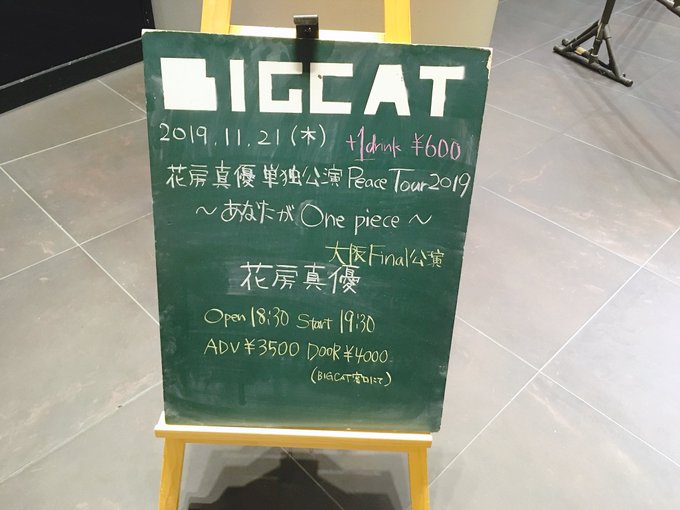 BIGCAT
2019.11.21(木) +1drink ¥600
花房真優 単独公演 Peace Tour 2019
〜あなたが One piece〜
大阪Final公演
花房真優
Open 18:30 Start 19:30
ADV ¥3500 DOOR ¥4000
(BIGCAT窓口にて)